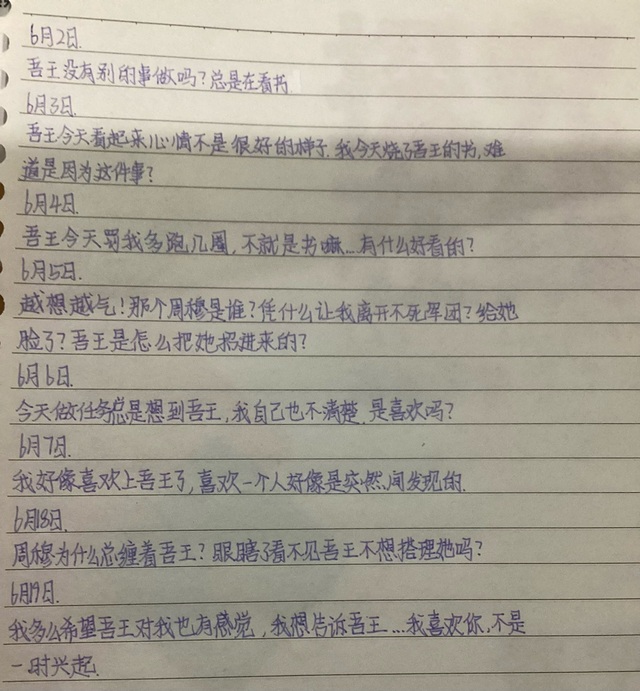 6月2日.
吾王没有别的事做吗?总是在看书.
6月3日.
吾王今天看起来心情不是很好的样子.我今天烧了吾王的书,难
道是因为这件事?
6月4日.
吾王今天罚我多跑几圈,不就是书嘛...有什么好看的?
6月5日.
越想越气!那个周穆是谁?凭什么让我离开不死军团?给她
脸了?吾王是怎么把她招进来的?
6月6日.
今天做任务总是想到吾王,我自己也不清楚.是喜欢吗?
6月7日.
我好像喜欢上吾王了,喜欢一个人好像是突然间发现的.
6月18日.
周穆为什么总缠着吾王?眼瞎了看不见吾王不想搭理她吗?
6月19日.
我多么希望吾王对我也有感觉,我想告诉吾王...我喜欢你,不是
一时兴起.